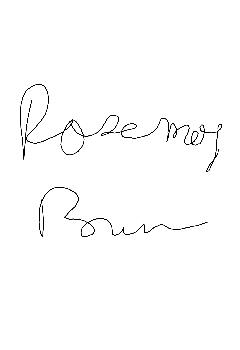 Rosemary
Brun